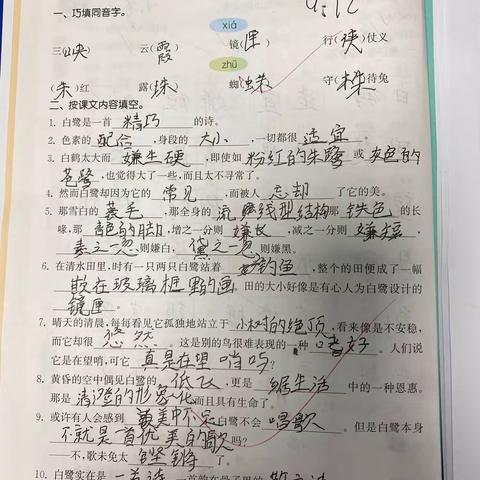 9.12
一、巧填同音字。
xiá
三(峡) 云(霞) 镜(匣) 行(侠)仗义
zhū
(朱)红 露(珠) 蜘(蛛) 守(株)待兔
二、按课文内容填空。
1. 白鹭是一首 精巧 的诗。
2. 色素的 配合 ,身段的 大小 ,一切都很 适宜 。
3. 白鹤太大而 嫌生硬 ,即使如 粉红的朱鹭 或 灰色的
苍鹭 ,也觉得大了一些,而且太不寻常了。
4. 然而白鹭却因为它的 常见 ,而被人 忘却 了它的美。
5. 那雪白的 蓑毛 ,那全身的 流线型结构 那 铁色 的长
喙,那 青色的脚 ,增之一分则 嫌长 ,减之一分则 嫌短 ,
素之一忽 则嫌白, 黛之一忽 则嫌黑。
6. 在清水田里,时有一只两只白鹭站着 钓鱼 ,整个的田便成了一幅
嵌在玻璃框 的画 田的大小好像是有心人为白鹭设计的
镜匣 。
7. 晴天的清晨,每每看见它孤独地站立于 小树的绝顶 ,看来像是不安稳,
而它却很 悠然 。这是别的鸟很难表现的一种 嗜好 。人们说
它是在望哨,可它 真是在望 哨吗?
8. 黄昏的空中偶见白鹭的 低飞 ,更是 生活 中的一种恩惠。
那是 清澄的形象化 而且具有生命了。
9. 或许有人会感到 美中不足 白鹭不会 唱歌 。但是白鹭本身
不就是 首优美的歌 吗?
——不,歌未免太 铿锵 了。
10. 白鹭实在是 一首诗